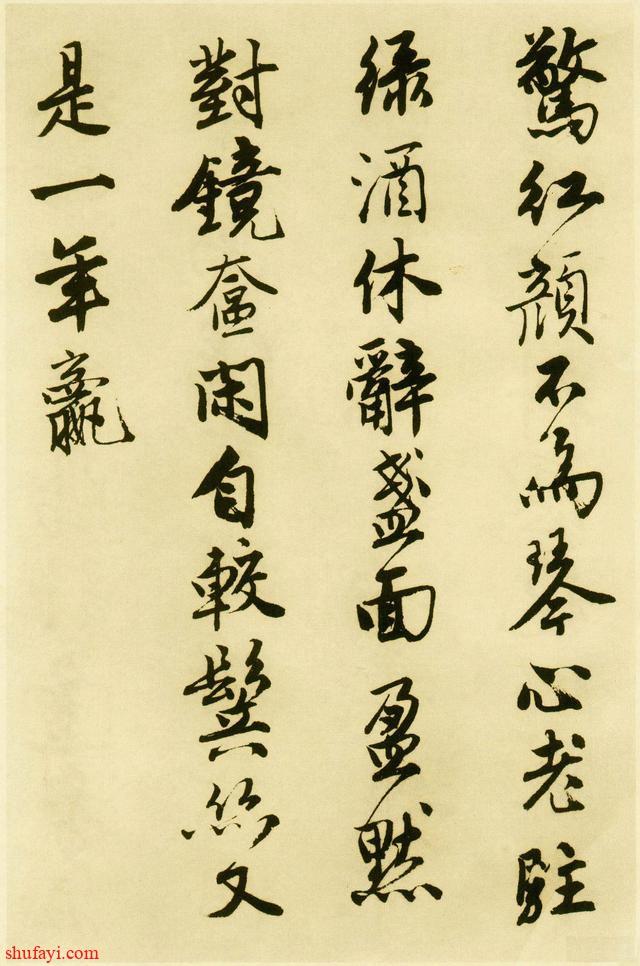 驚紅顏不為琴心老駐
綠酒休辭盞面盈默
對鏡奩閑自較鬓絲又
是一年贏
shufayi.com